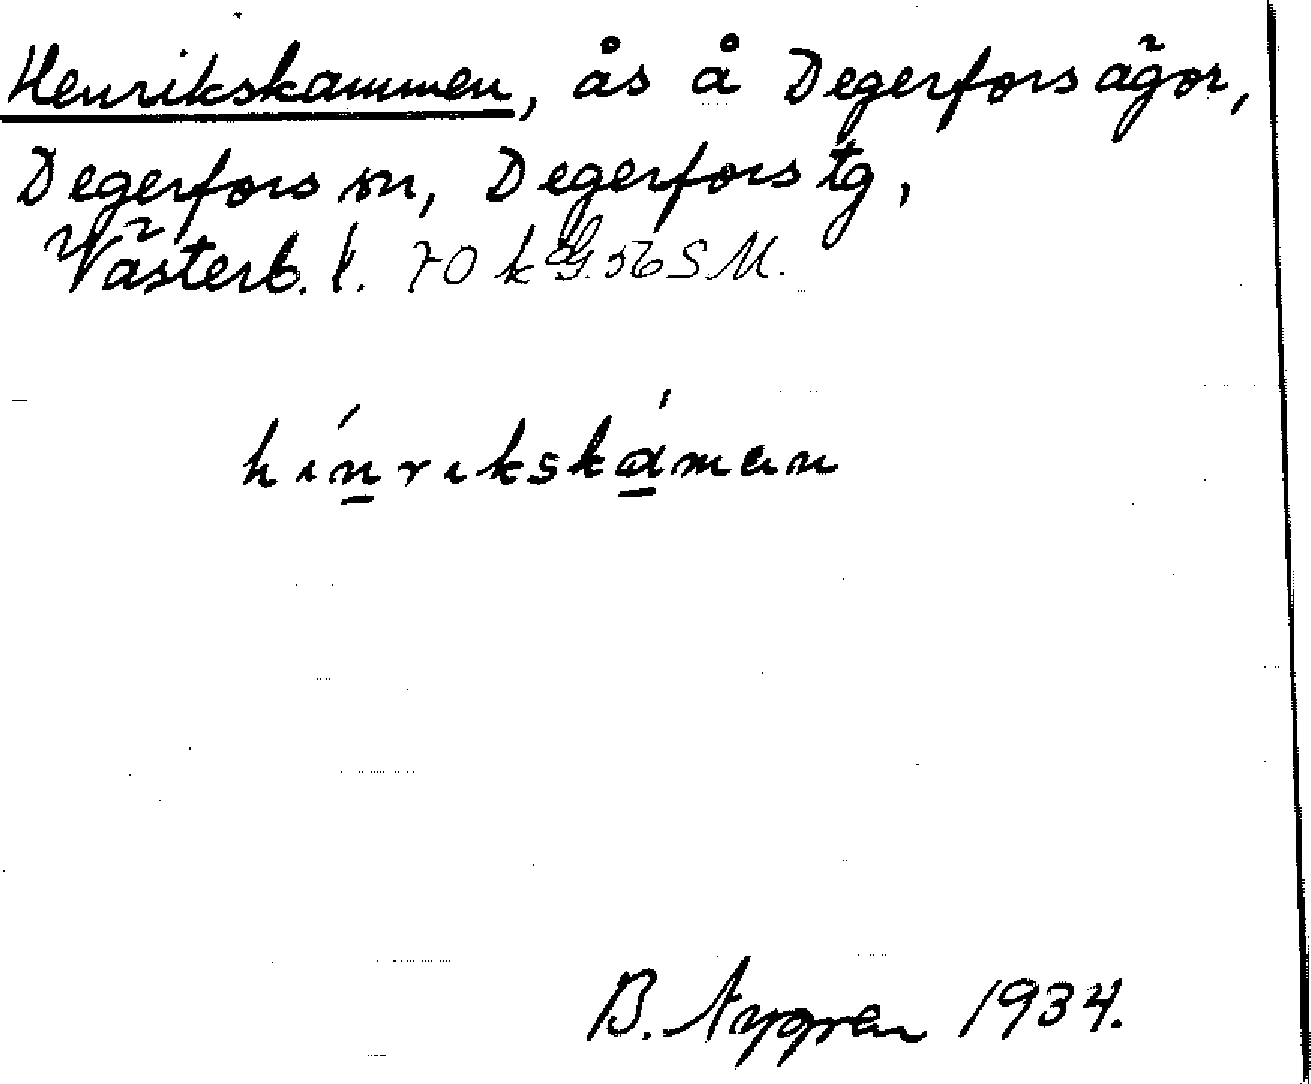 Henrikskammen, ås å Degerfors ägor,
Degerfors sn, Degerfors tg,
Västerb. l. 70 k G 56 S.M.
hínrikskámen
B. Nygren 1934.